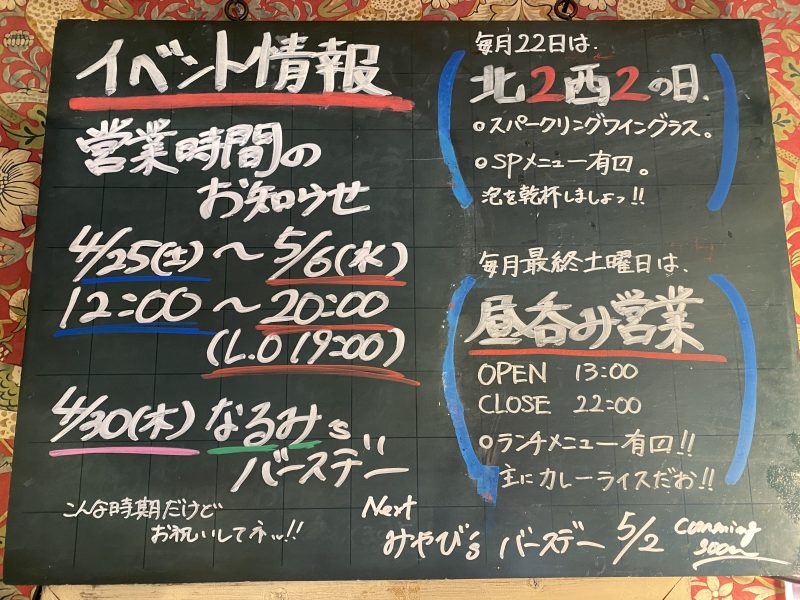 イベント情報
営業時間の
お知らせ
4/25(土)～5/6(水)
12:00～20:00
(L.O 19:00)
4/30(木) なるみs
バースデー
こんな時期だけど
お祝いしてネッ!!
毎月22日は、
北2西2の日、
○スパークリングワイングラス。
○SPメニュー有回。
泡を乾杯しましょっ!!
毎月最終土曜日は、
昼呑み営業
OPEN 13:00
CLOSE 22:00
○ランチメニュー有回!!
主にカレーライスだお!!
Next
みやび's バースデー 5/2 comming
soon